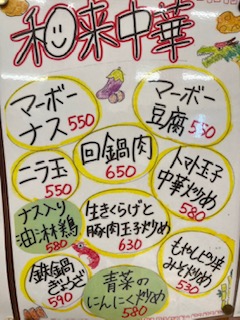 和来中華
マーボー
ナス 550
マーボー
豆腐 550
ニラ玉
550
回鍋肉
650
トマト玉子
中華炒め
580
ナス入り
油淋鶏
580
生きくらげと
豚肉玉子炒め
630
もやしピリ辛
みそ炒め
530
鉄鍋
ぎょうざ
590
青菜の
にんにく炒め
580